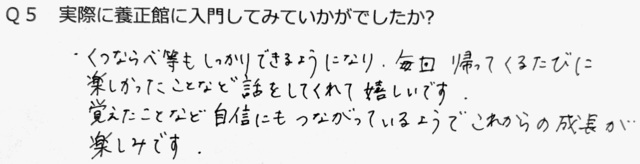 Q5 実際に養正館に入門してみていかがでしたか?
・くつならべ等もしっかりできるようになり、毎回 帰ってくるたびに
楽しかったことなど話をしてくれて嬉しいです.
覚えたことなど自信にもつながっているようでこれからの成長が
楽しみです.